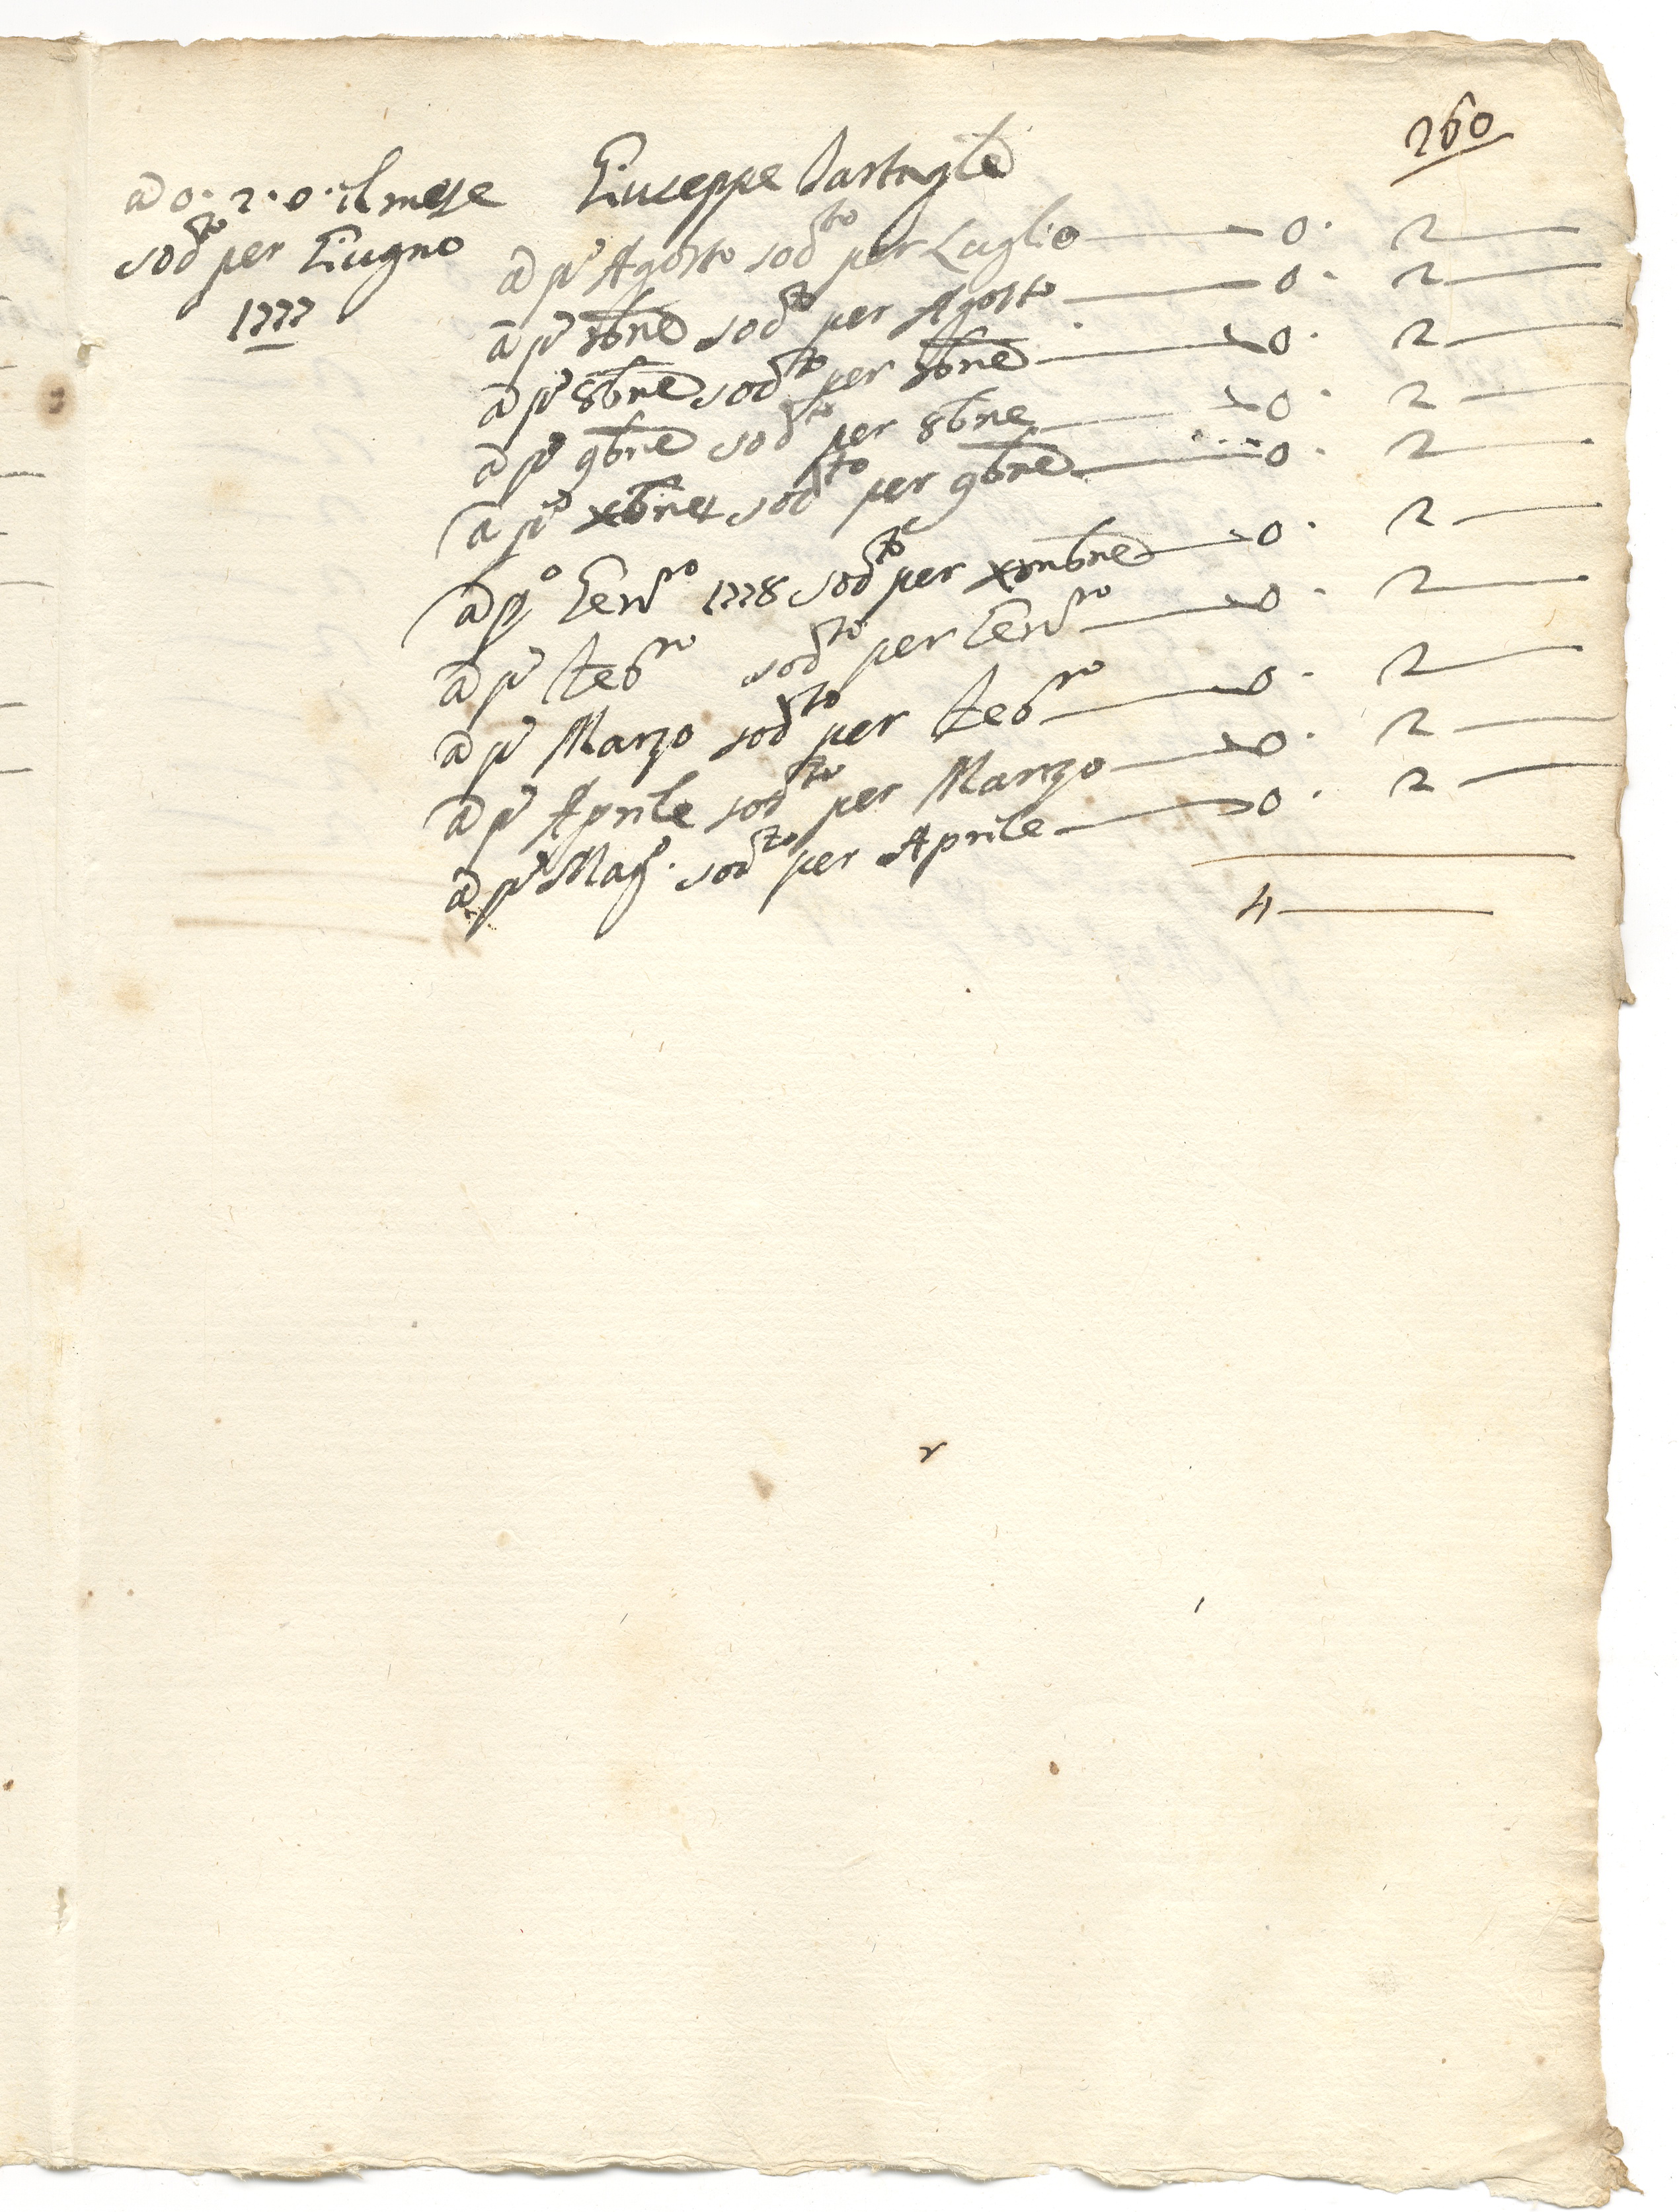 260
a 0 · 2 · 0 · il mese
sodto per Giugno
1777
Giuseppe
a po Agosto sodto per Luglio — 0 · 2 —
a po 7bre sodto per Agosto — 0 · 2 —
a po 8bre sodto per 7bre — 0 · 2 —
a po 9bre sodto per 8bre — 0 · 2 —
a po xbre sodto per 9bre — 0 · 2 —
a po Gennro 1778 sodto per xmbre — 0 · 2 —
a po Febro sodto per Gennro — 0 · 2 —
a po Marzo sodto per Febro — 0 · 2 —
a po Aprile sodto per Marzo — 0 · 2 —
a po Mago. sodto per Aprile — 0 · 2 —
4 —